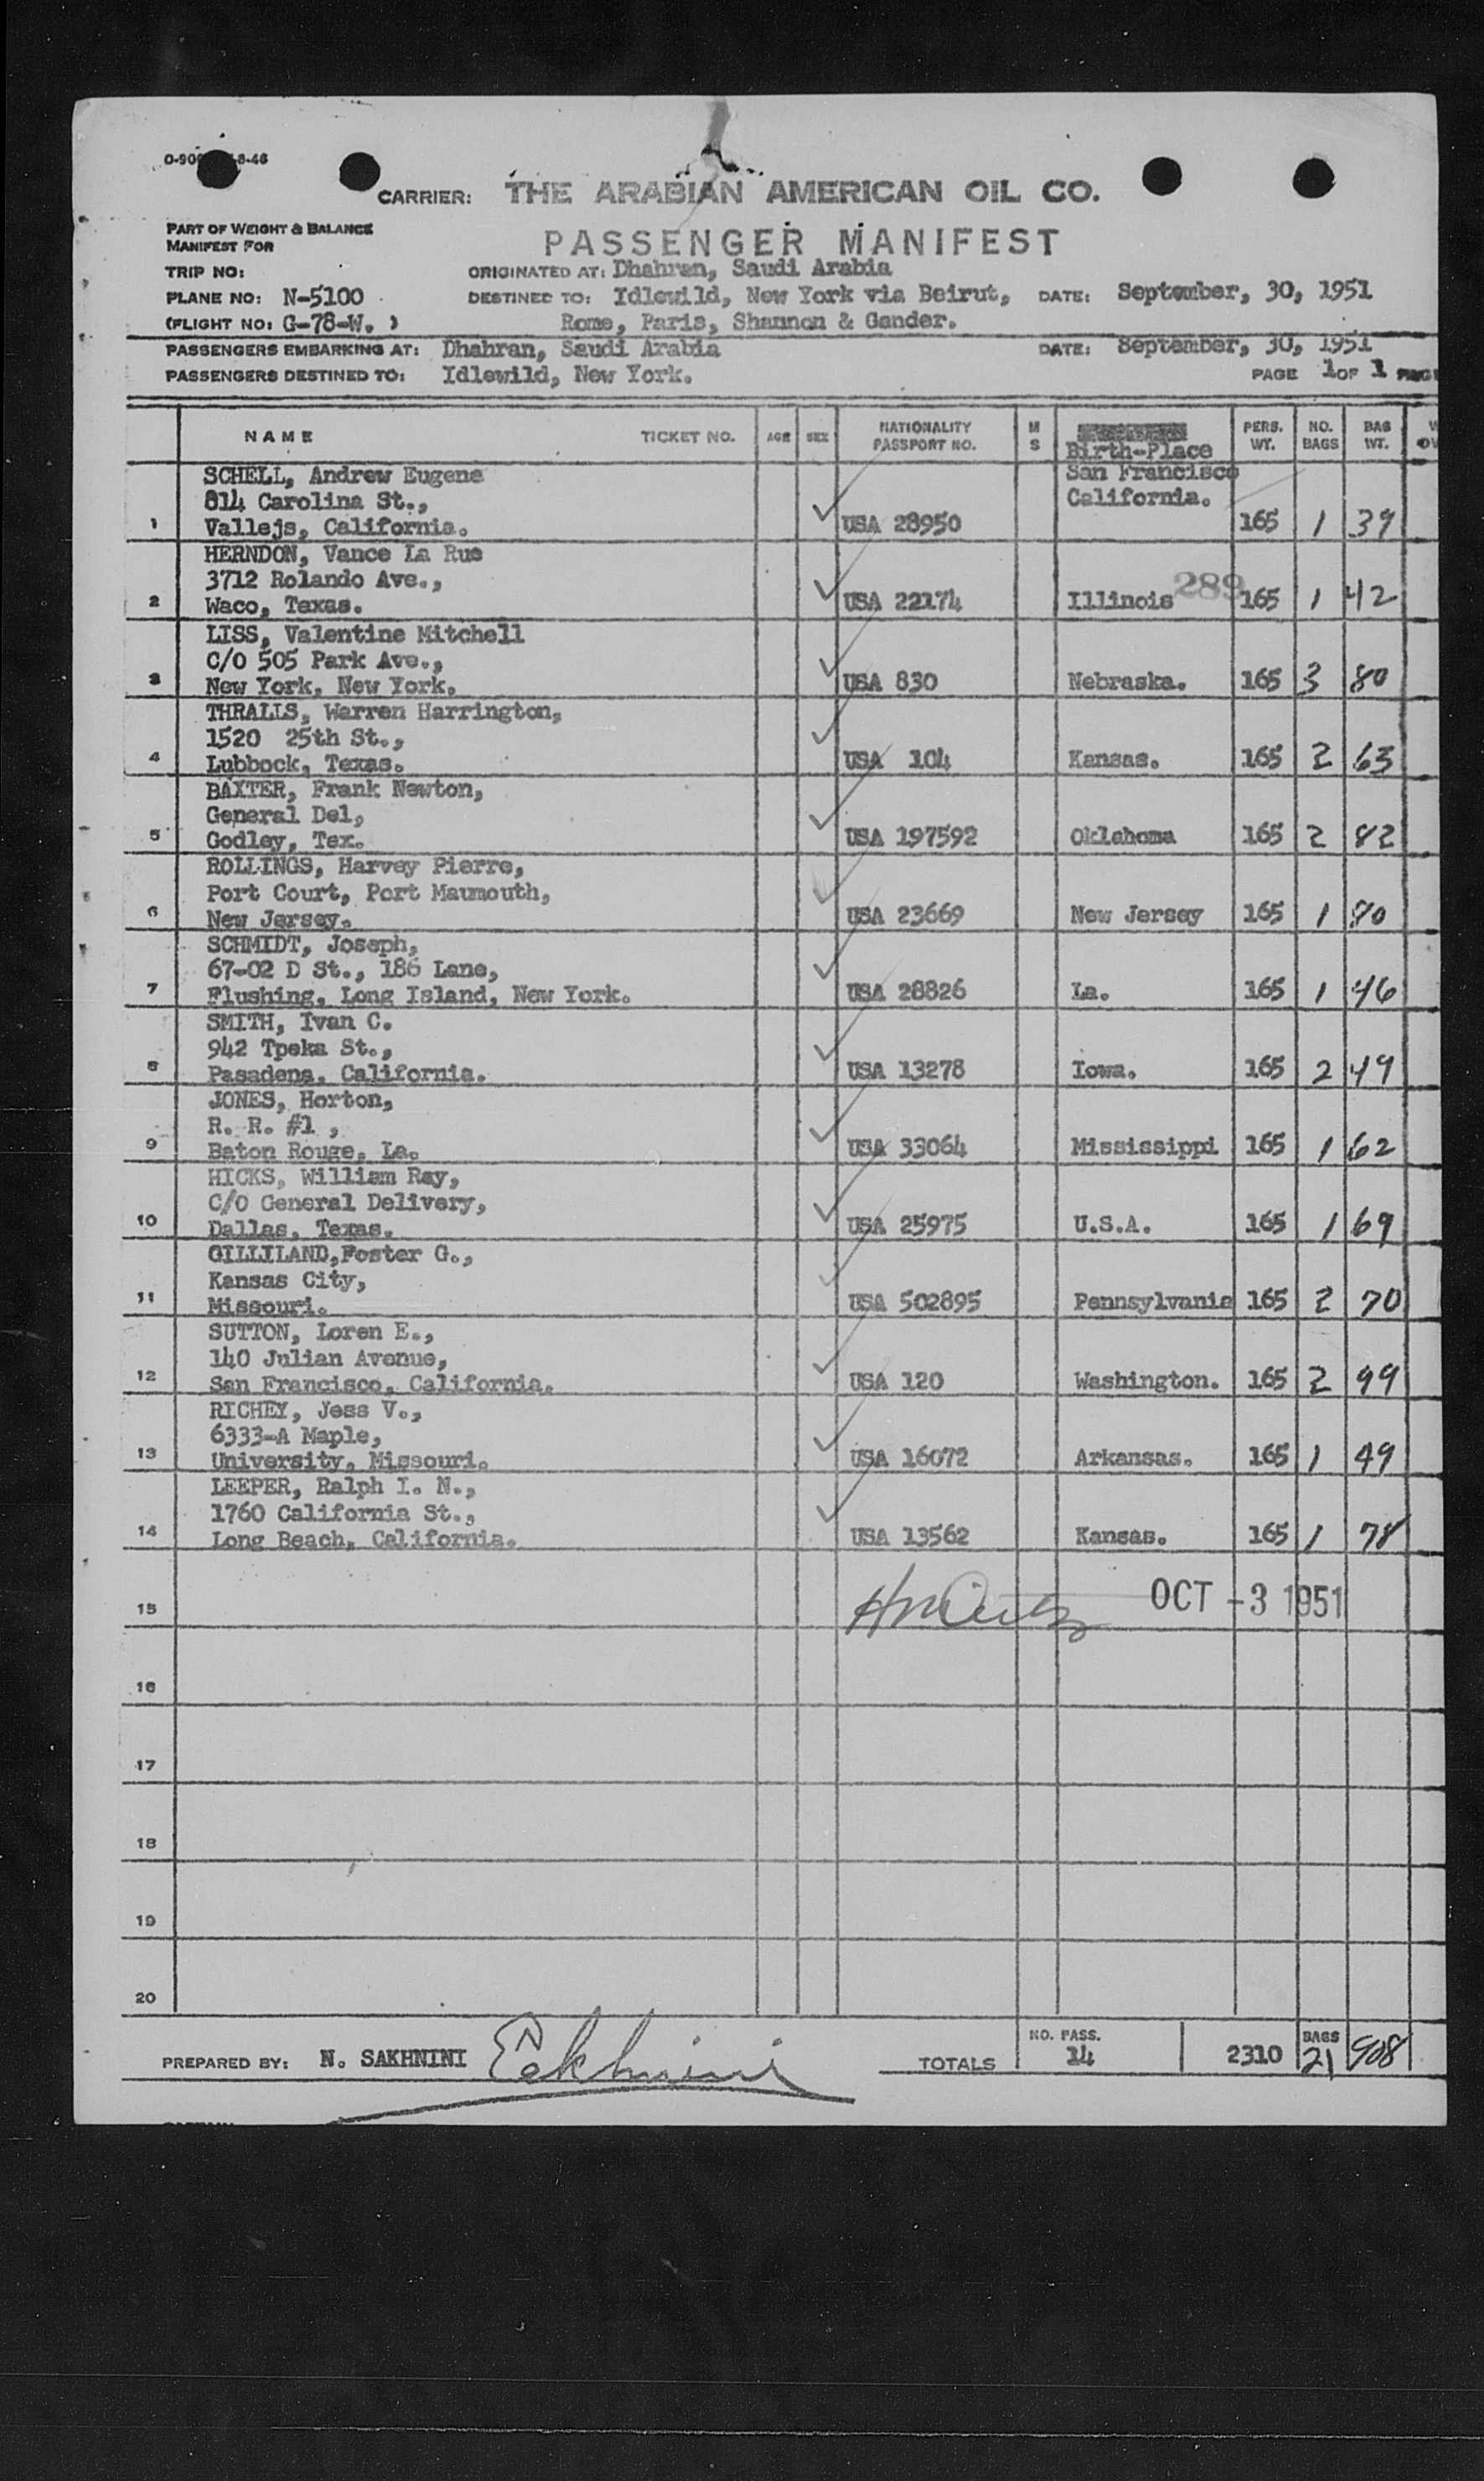 CARRIER: THE ARABIAN AMERICAN OIL CO.
PART OF WEIGHT & BALANCE
MANIFEST FOR
PASSENGER MANIFEST
TRIP NO: ORIGINATED AT: Dhahran, Saudi Arabia
PLANE NO: N-5100 DESTINED TO: Idlewild, New York via Beirut, DATE: September, 30, 1951
(FLIGHT NO: G-78-W. ) Rome, Paris, Shannon & Gander.
PASSENGERS EMBARKING AT: Dhahran, Saudi Arabia DATE: September, 30, 1951
PASSENGERS DESTINED TO: Idlewild, New York. PAGE 1 OF 1
NAME TICKET NO. AGE SEX NATIONALITY PASSPORT NO. M S Birth-Place PERS. WT. NO. BAGS BAG WT.
SCHELL, Andrew Eugene San Francisco
814 Carolina St., California.
1 Vallejs, California. USA 28950 165 1 39
HERNDON, Vance La Rue
3712 Rolando Ave., 289
2 Waco, Texas. USA 22174 Illinois 165 1 42
LISS, Valentine Mitchell
C/O 505 Park Ave.,
3 New York, New York. USA 830 Nebraska. 165 3 80
THRALLS, Warren Harrington,
1520 25th St.,
4 Lubbock, Texas. USA 104 Kansas. 165 2 63
BAXTER, Frank Newton,
General Del,
5 Godley, Tex. USA 197592 Oklahoma 165 2 82
ROLLINGS, Harvey Pierre,
Port Court, Port Maumouth,
6 New Jersey. USA 23669 New Jersey 165 1 80
SCHMIDT, Joseph,
67-02 D St., 186 Lane,
7 Flushing, Long Island, New York. USA 28826 La. 165 1 46
SMITH, Ivan C.
942 Tpeka St.,
8 Pasadena, California. USA 13278 Iowa. 165 2 49
JONES, Horton,
R. R. #1 ,
9 Baton Rouge, La. USA 33064 Mississippi 165 1 62
HICKS, William Ray,
C/O General Delivery,
10 Dallas, Texas. USA 25975 U.S.A. 165 1 69
GILLILAND,Foster G.,
Kansas City,
11 Missouri. USA 502895 Pennsylvania 165 2 70
SUTTON, Loren E.,
140 Julian Avenue,
12 San Francisco, California. USA 120 Washington. 165 2 99
RICHEY, Jess V.,
6333-A Maple,
13 University, Missouri. USA 16072 Arkansas. 165 1 49
LEEPER, Ralph I. N.,
1760 California St.,
14 Long Beach, California. USA 13562 Kansas. 165 1 78
15 OCT -3 1951
16
17
18
19
20
PREPARED BY: N. SAKHNINI Sakhnini TOTALS NO. PASS. 14 2310 BAGS 21 908